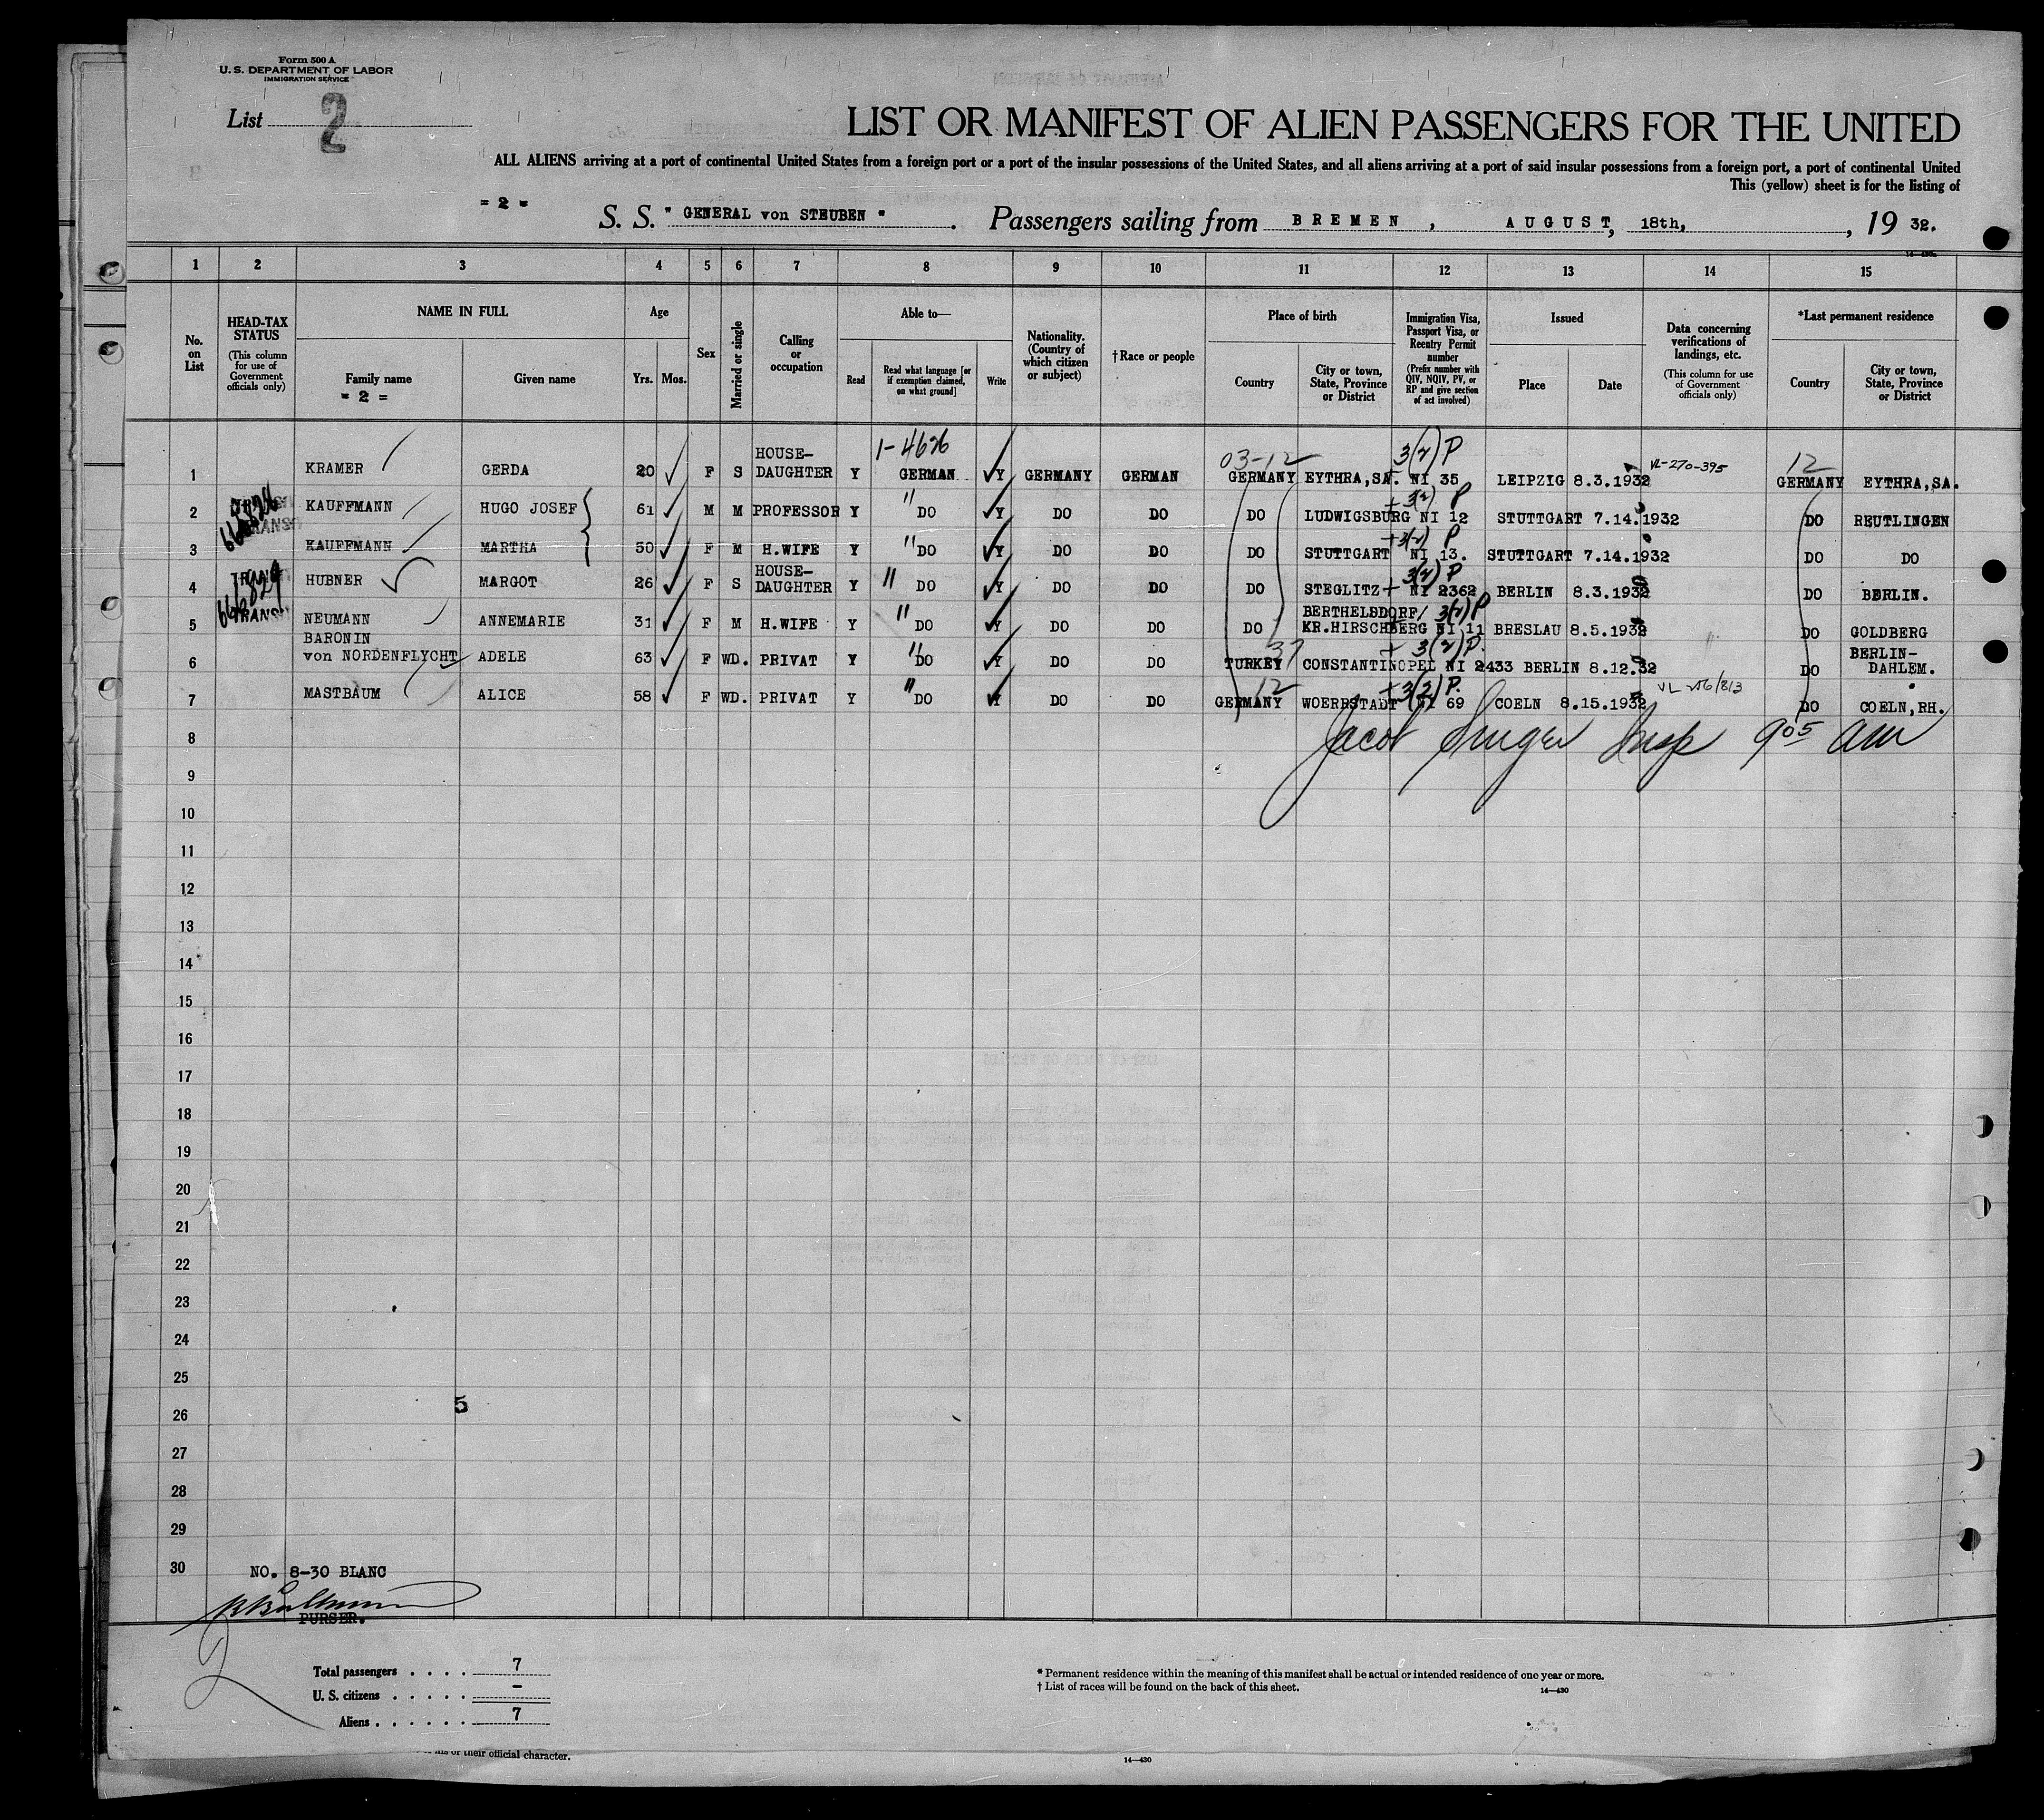 Form 500 A
U. S. DEPARTMENT OF LABOR
IMMIGRATION SERVICE
List 2
LIST OR MANIFEST OF ALIEN PASSENGERS FOR THE UNITED
ALL ALIENS arriving at a port of continental United States from a foreign port or a port of the insular possessions of the United States, and all aliens arriving at a port of said insular possessions from a foreign port, a port of continental United
This (yellow) sheet is for the listing of
= 2 =
S. S. " GENERAL von STEUBEN ". Passengers sailing from BREMEN, AUGUST, 18th, , 19 32.
14—430a
1 2 3 4 5 6 7 8 9 10 11 12 13 14 15
No. on List
HEAD-TAX STATUS (This column for use of Government officials only)
NAME IN FULL
Family name
= 2 =
Given name
Age
Yrs. Mos.
Sex
Married or single
Calling or occupation
Able to—
Read
Read what language [or if exemption claimed, on what ground]
Write
Nationality. (Country of which citizen or subject)
†Race or people
Place of birth
Country
City or town, State, Province or District
Immigration Visa, Passport Visa, or Reentry Permit number (Prefix number with QIV, NQIV, PV, or RP and give section of act involved)
Issued
Place
Date
Data concerning verifications of landings, etc. (This column for use of Government officials only)
*Last permanent residence
Country
City or town, State, Province or District
1-4626 03-12 3(2) P VL-270-395 12
1 KRAMER GERDA 20 F S HOUSE-DAUGHTER Y GERMAN Y GERMANY GERMAN GERMANY EYTHRA,SA. NI 35 LEIPZIG 8.3.1932 GERMANY EYTHRA,SA.
+3(2) P
2 KAUFFMANN HUGO JOSEF 61 M M PROFESSOR Y " DO Y DO DO DO LUDWIGSBURG NI 12 STUTTGART 7.14.1932 DO REUTLINGEN
+3(2) P
3 KAUFFMANN MARTHA 50 F M H.WIFE Y " DO Y DO DO DO STUTTGART NI 13. STUTTGART 7.14.1932 DO DO
3(2) P
4 HUBNER MARGOT 26 F S HOUSE-DAUGHTER Y " DO Y DO DO DO STEGLITZ + NI 2362 BERLIN 8.3.1932 DO BERLIN.
3(2) P
5 NEUMANN ANNEMARIE 31 F M H.WIFE Y " DO Y DO DO DO BERTHELSDORF/ KR.HIRSCHBERG NI 11 BRESLAU 8.5.1932 DO GOLDBERG
37 + 3(2) P.
6 BARONIN von NORDENFLYCHT ADELE 63 F WD. PRIVAT Y " DO Y DO DO TURKEY CONSTANTINOPEL NI 2433 BERLIN 8.12.32 DO BERLIN-DAHLEM.
12 +3(2) P.
7 MASTBAUM ALICE 58 F WD. PRIVAT Y " DO Y DO DO GERMANY WOERRSTADT NI 69 COELN 8.15.1932 DO COELN,RH.
8 Jacob Singer Insp 9 05 am
9
10
11
12
13
14
15
16
17
18
19
20
21
22
23
24
25
5
26
27
28
29
30 NO. 8-30 BLANC
PURSER.
Total passengers . . . . 7
U. S. citizens . . . . . -
Aliens . . . . . . 7
* Permanent residence within the meaning of this manifest shall be actual or intended residence of one year or more.
† List of races will be found on the back of this sheet.
14—430
or their official character.
14—430